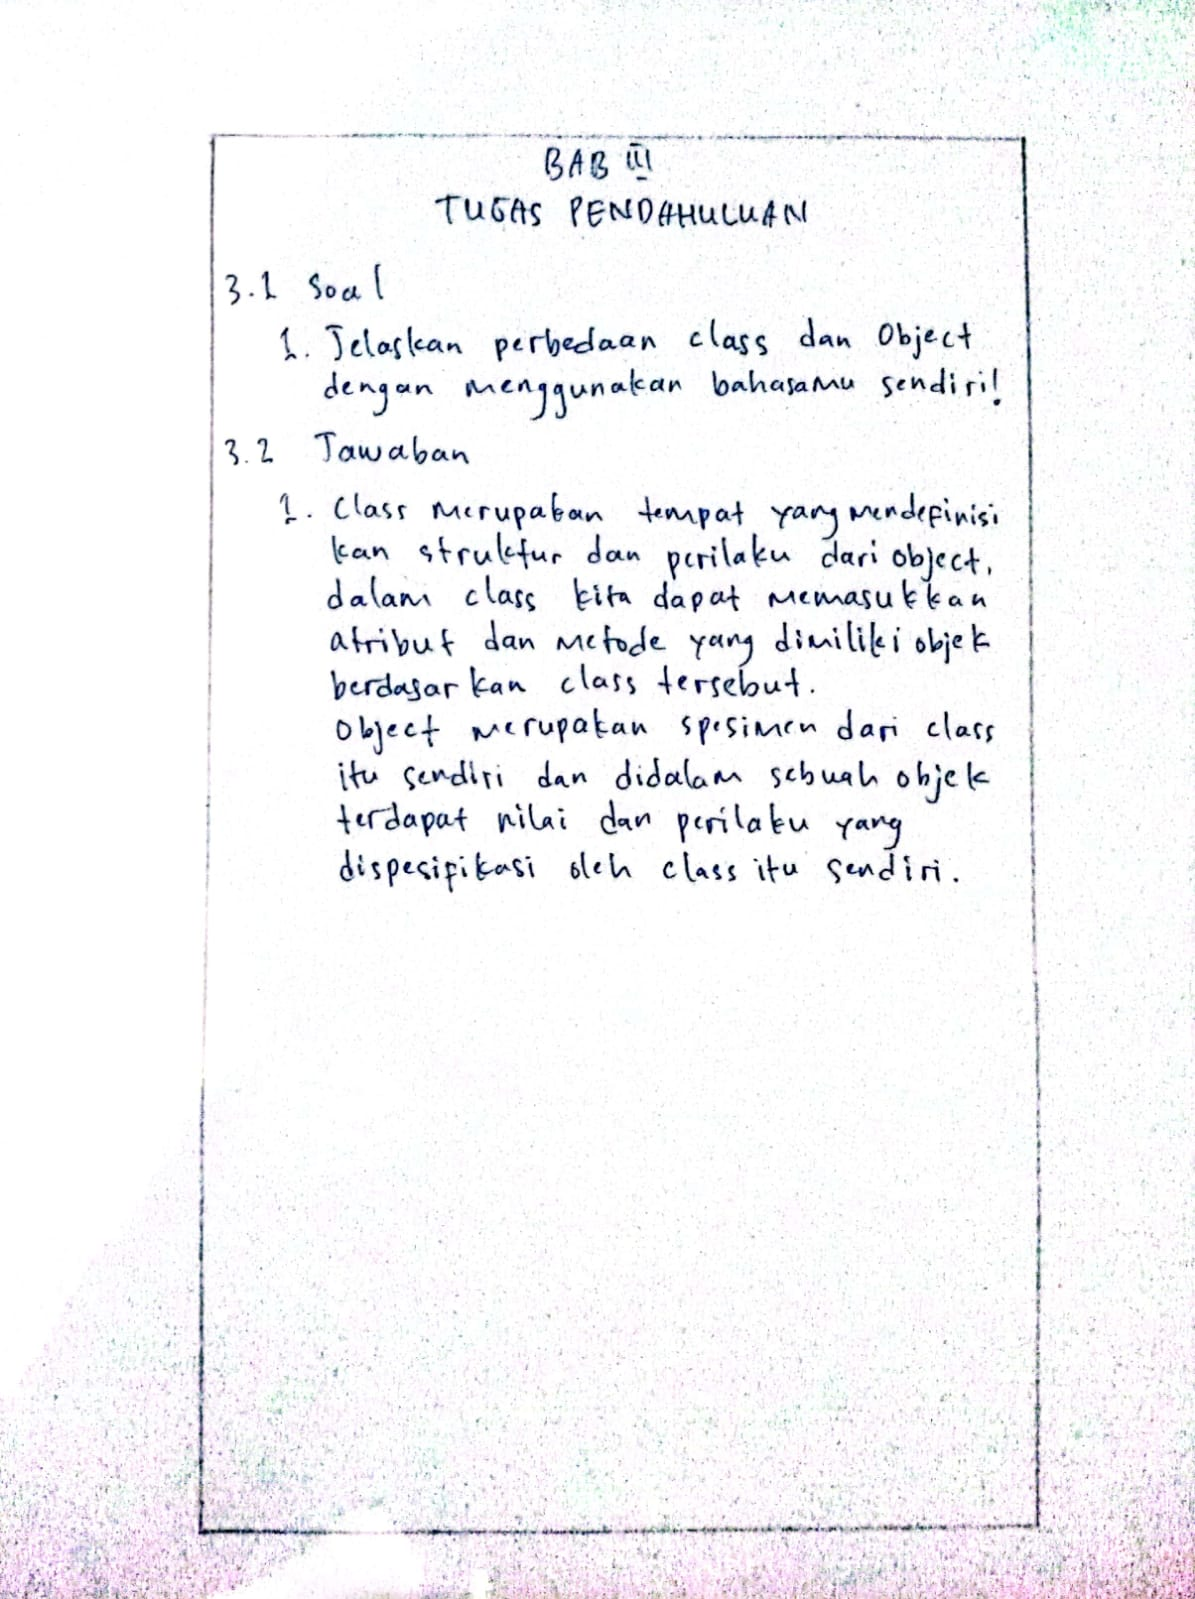 BAB III
TUGAS PENDAHULUAN
3.1 Soal
1. Jelaskan perbedaan class dan Object
dengan menggunakan bahasamu sendiri!
3.2 Jawaban
1. Class merupakan tempat yang mendefinisi
kan struktur dan perilaku dari object,
dalam class kita dapat memasukkan
atribut dan metode yang dimiliki objek
berdasarkan class tersebut.
Object merupakan spesimen dari class
itu sendiri dan didalam sebuah objek
terdapat nilai dan perilaku yang
dispesifikasi oleh class itu sendiri.